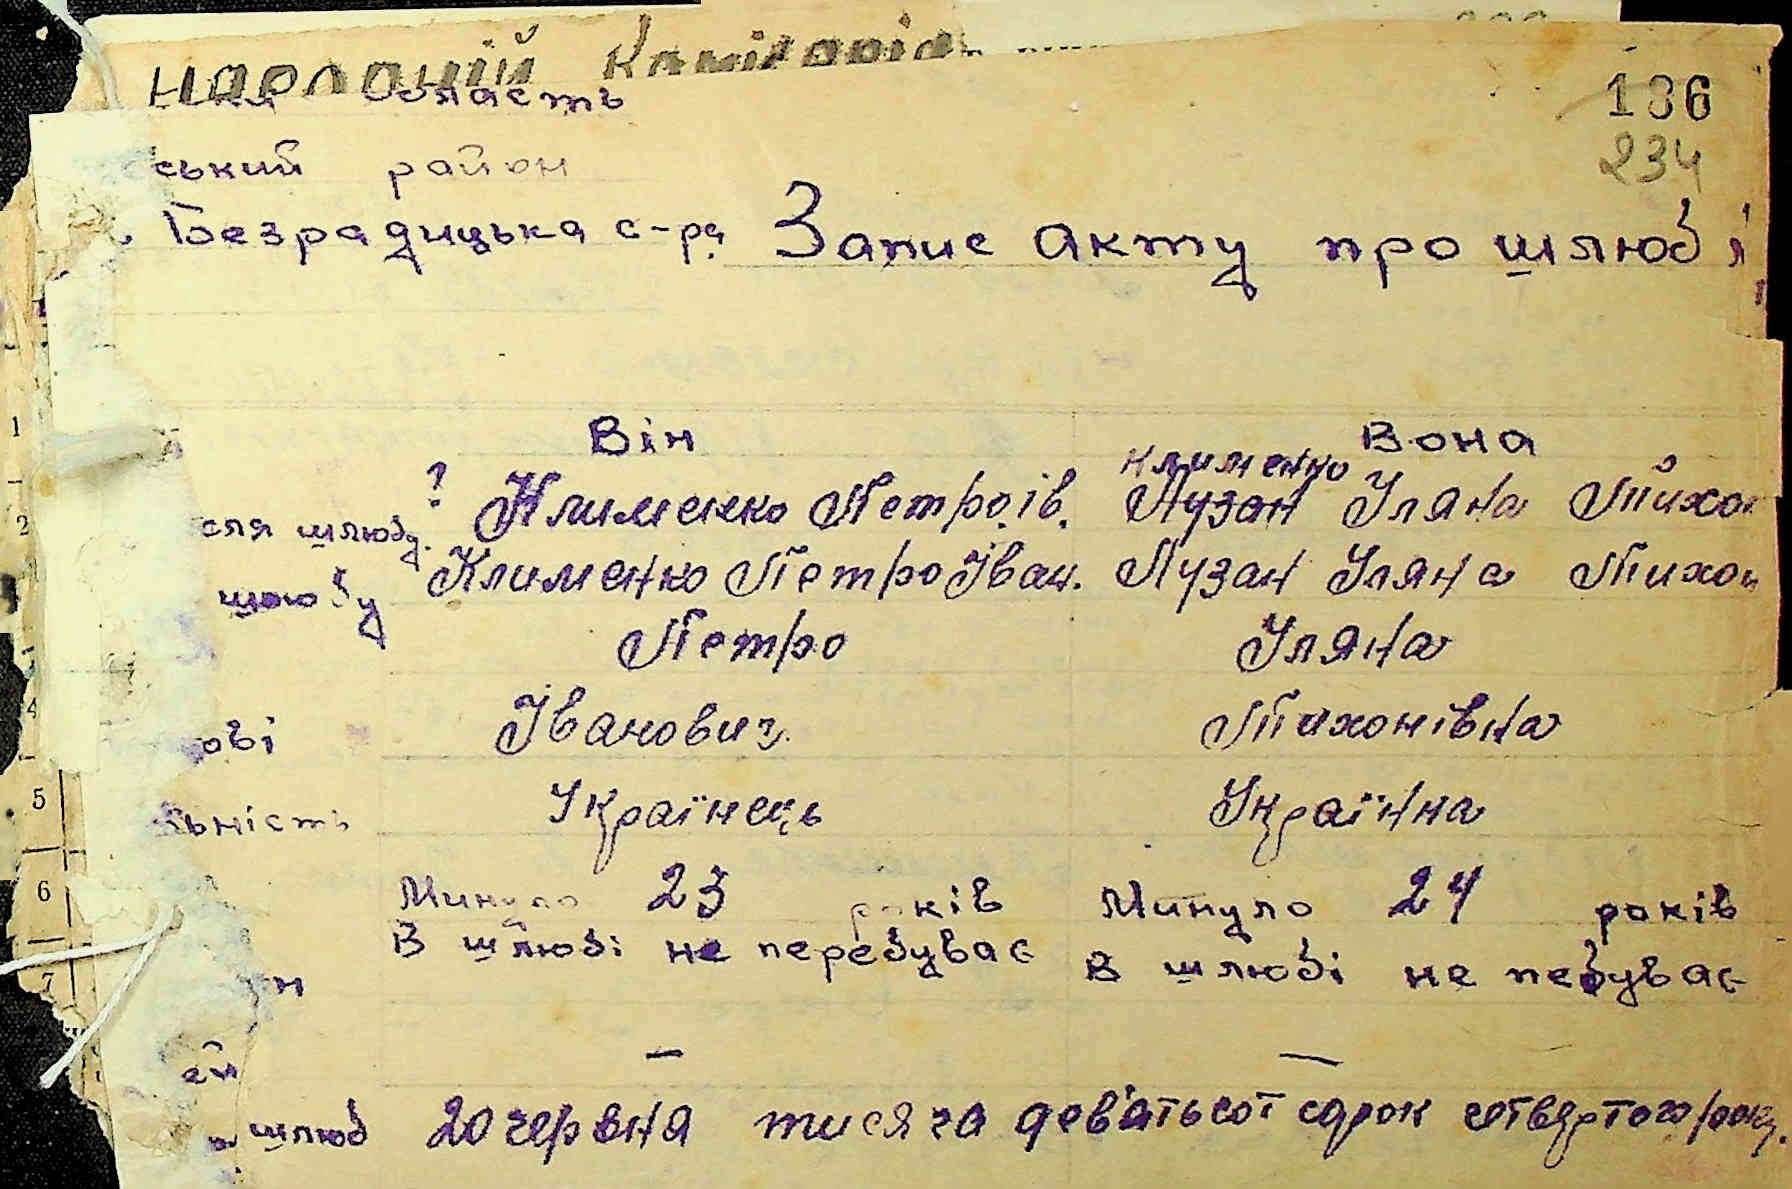 народній Комісаріат
область
136
ський район
234
Безрадицька с-ра Запис акту про шлюб
1
Він Вона
Клименко
? Клименко Петро ів. Лузан Уляна Тихон
2 сля шлюбу.
Клименко Петро Іван. Лузан Уляна Тихон
шлюбу
Петро Уляна
4
ові Іванович Тихонівна
5
ьність Українець Українка
6 Минуло 23 років Минуло 24 років
В шлюбі не перебуває В шлюбі не пебуває
7 н
ей — —
шлюб 20 червня тисяча девятьсот сорок четвертого року.